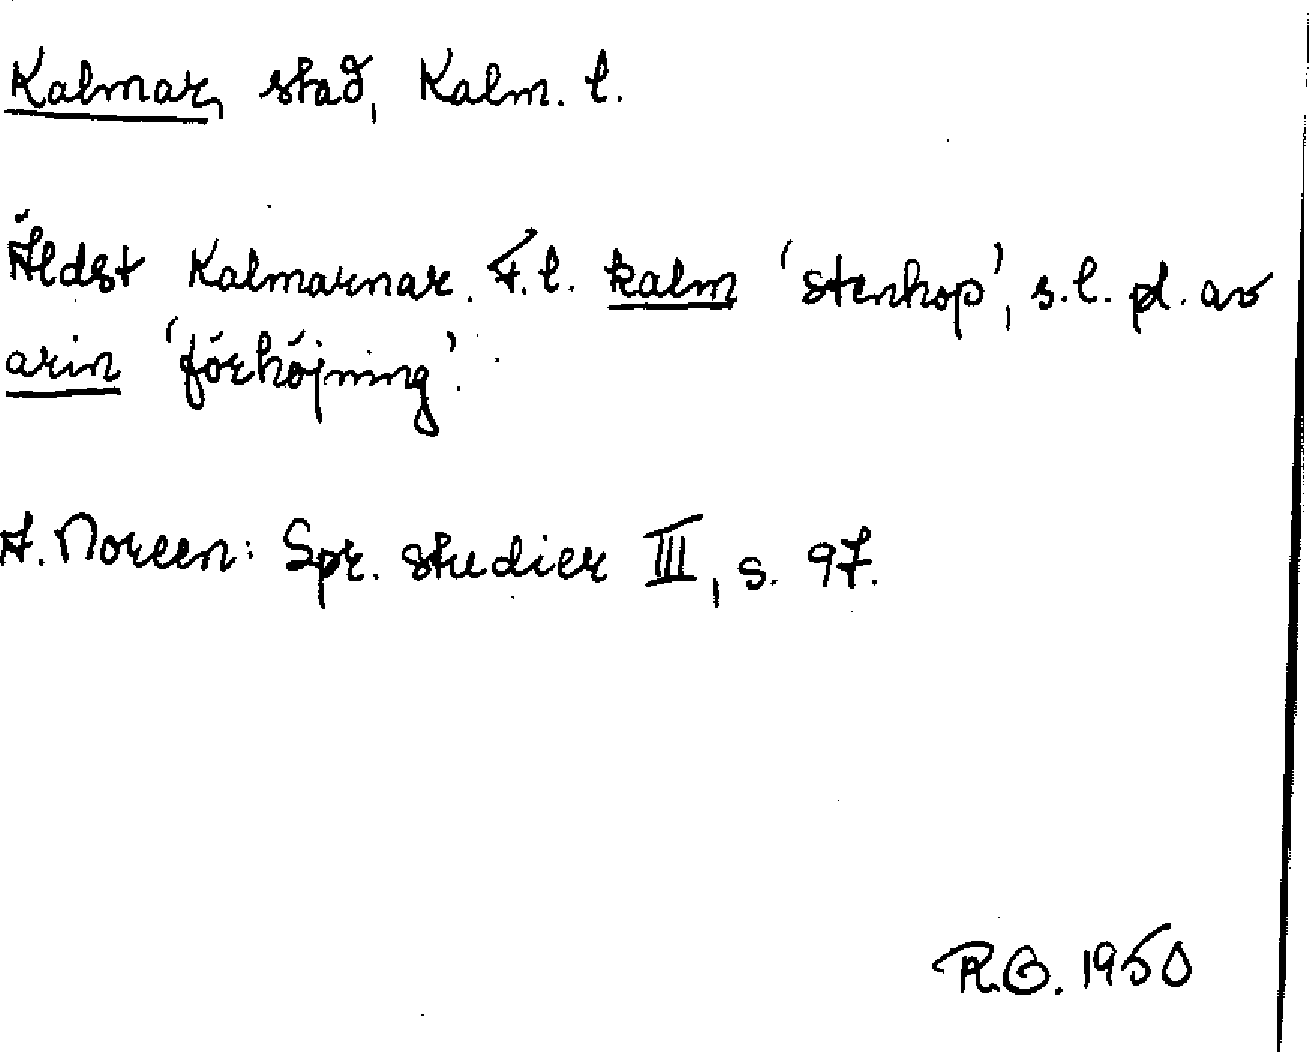 Kalmar, stad, Kalm. l.
Äldst Kalmarnar. F.l. kalm 'stenhop', s.l. pl. av
arin 'förhöjning'.
A. Noreen: Spr. studier III, s. 97.
1950